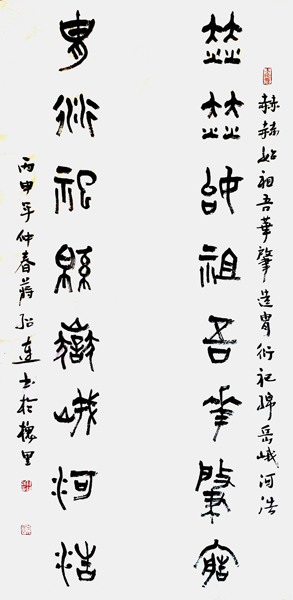 赫赫始祖吾華肇造胄衍祀綿岳峨河浩
赫赫始祖吾華肇造
胄衍祀緜嶽峨河浩
丙申年仲春蔣連书於里